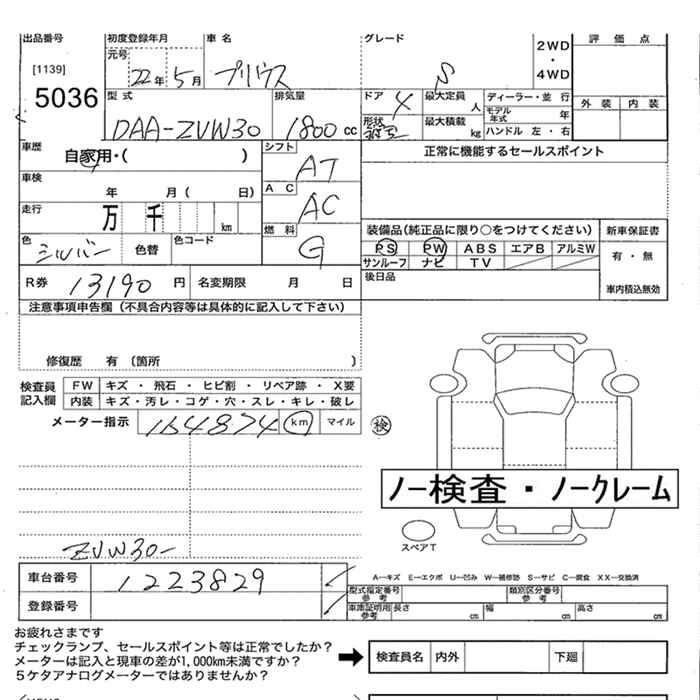 出品番号 初度登録年月 車名 グレード 2WD・4WD 評価点
[1139] 元号 22年5月 プリウス S
5036
型式 排気量 ドア 4 最大定員 人 ディーラー・並行 外装 内装
DAA-ZVW30 1800cc 形状 最大積載 kg モデル年式 年
ハンドル 左・右
車歴 自家用・( ) シフト AT 正常に機能するセールスポイント
車検 年 月( 日) AC AC
走行 万 千 km 燃料 G 装備品(純正品に限り○をつけてください) 新車保証書
色 シルバー 色替 色コード PS PW ABS エアB アルミW 有・無
サンルーフ ナビ TV
R券 13190円 名変期限 月 日 後日品 車内積込無効
注意事項申告欄(不具合内容等は具体的に記入して下さい)
修復歴 有(箇所 )
検査員記入欄 FW キズ・飛石・ヒビ割・リペア跡・X要
内装 キズ・汚レ・コゲ・穴・スレ・キレ・破レ
メーター指示 164874 km マイル 検
ノー検査・ノークレーム
スペアT
ZVW30-
車台番号 1223829
A―キズ E―エクボ U―凹み W―補修跡 S―サビ C―腐食 XX―交換済
型式指定番号参考 類別区分番号参考
登録番号 車庫証明用参考 長さ cm 幅 cm 高さ cm
お疲れさまです
チェックランプ、セールスポイント等は正常でしたか?
メーターは記入と現車の差が1,000km未満ですか?
5ケタアナログメーターではありませんか?
➡ 検査員名 内外 下廻